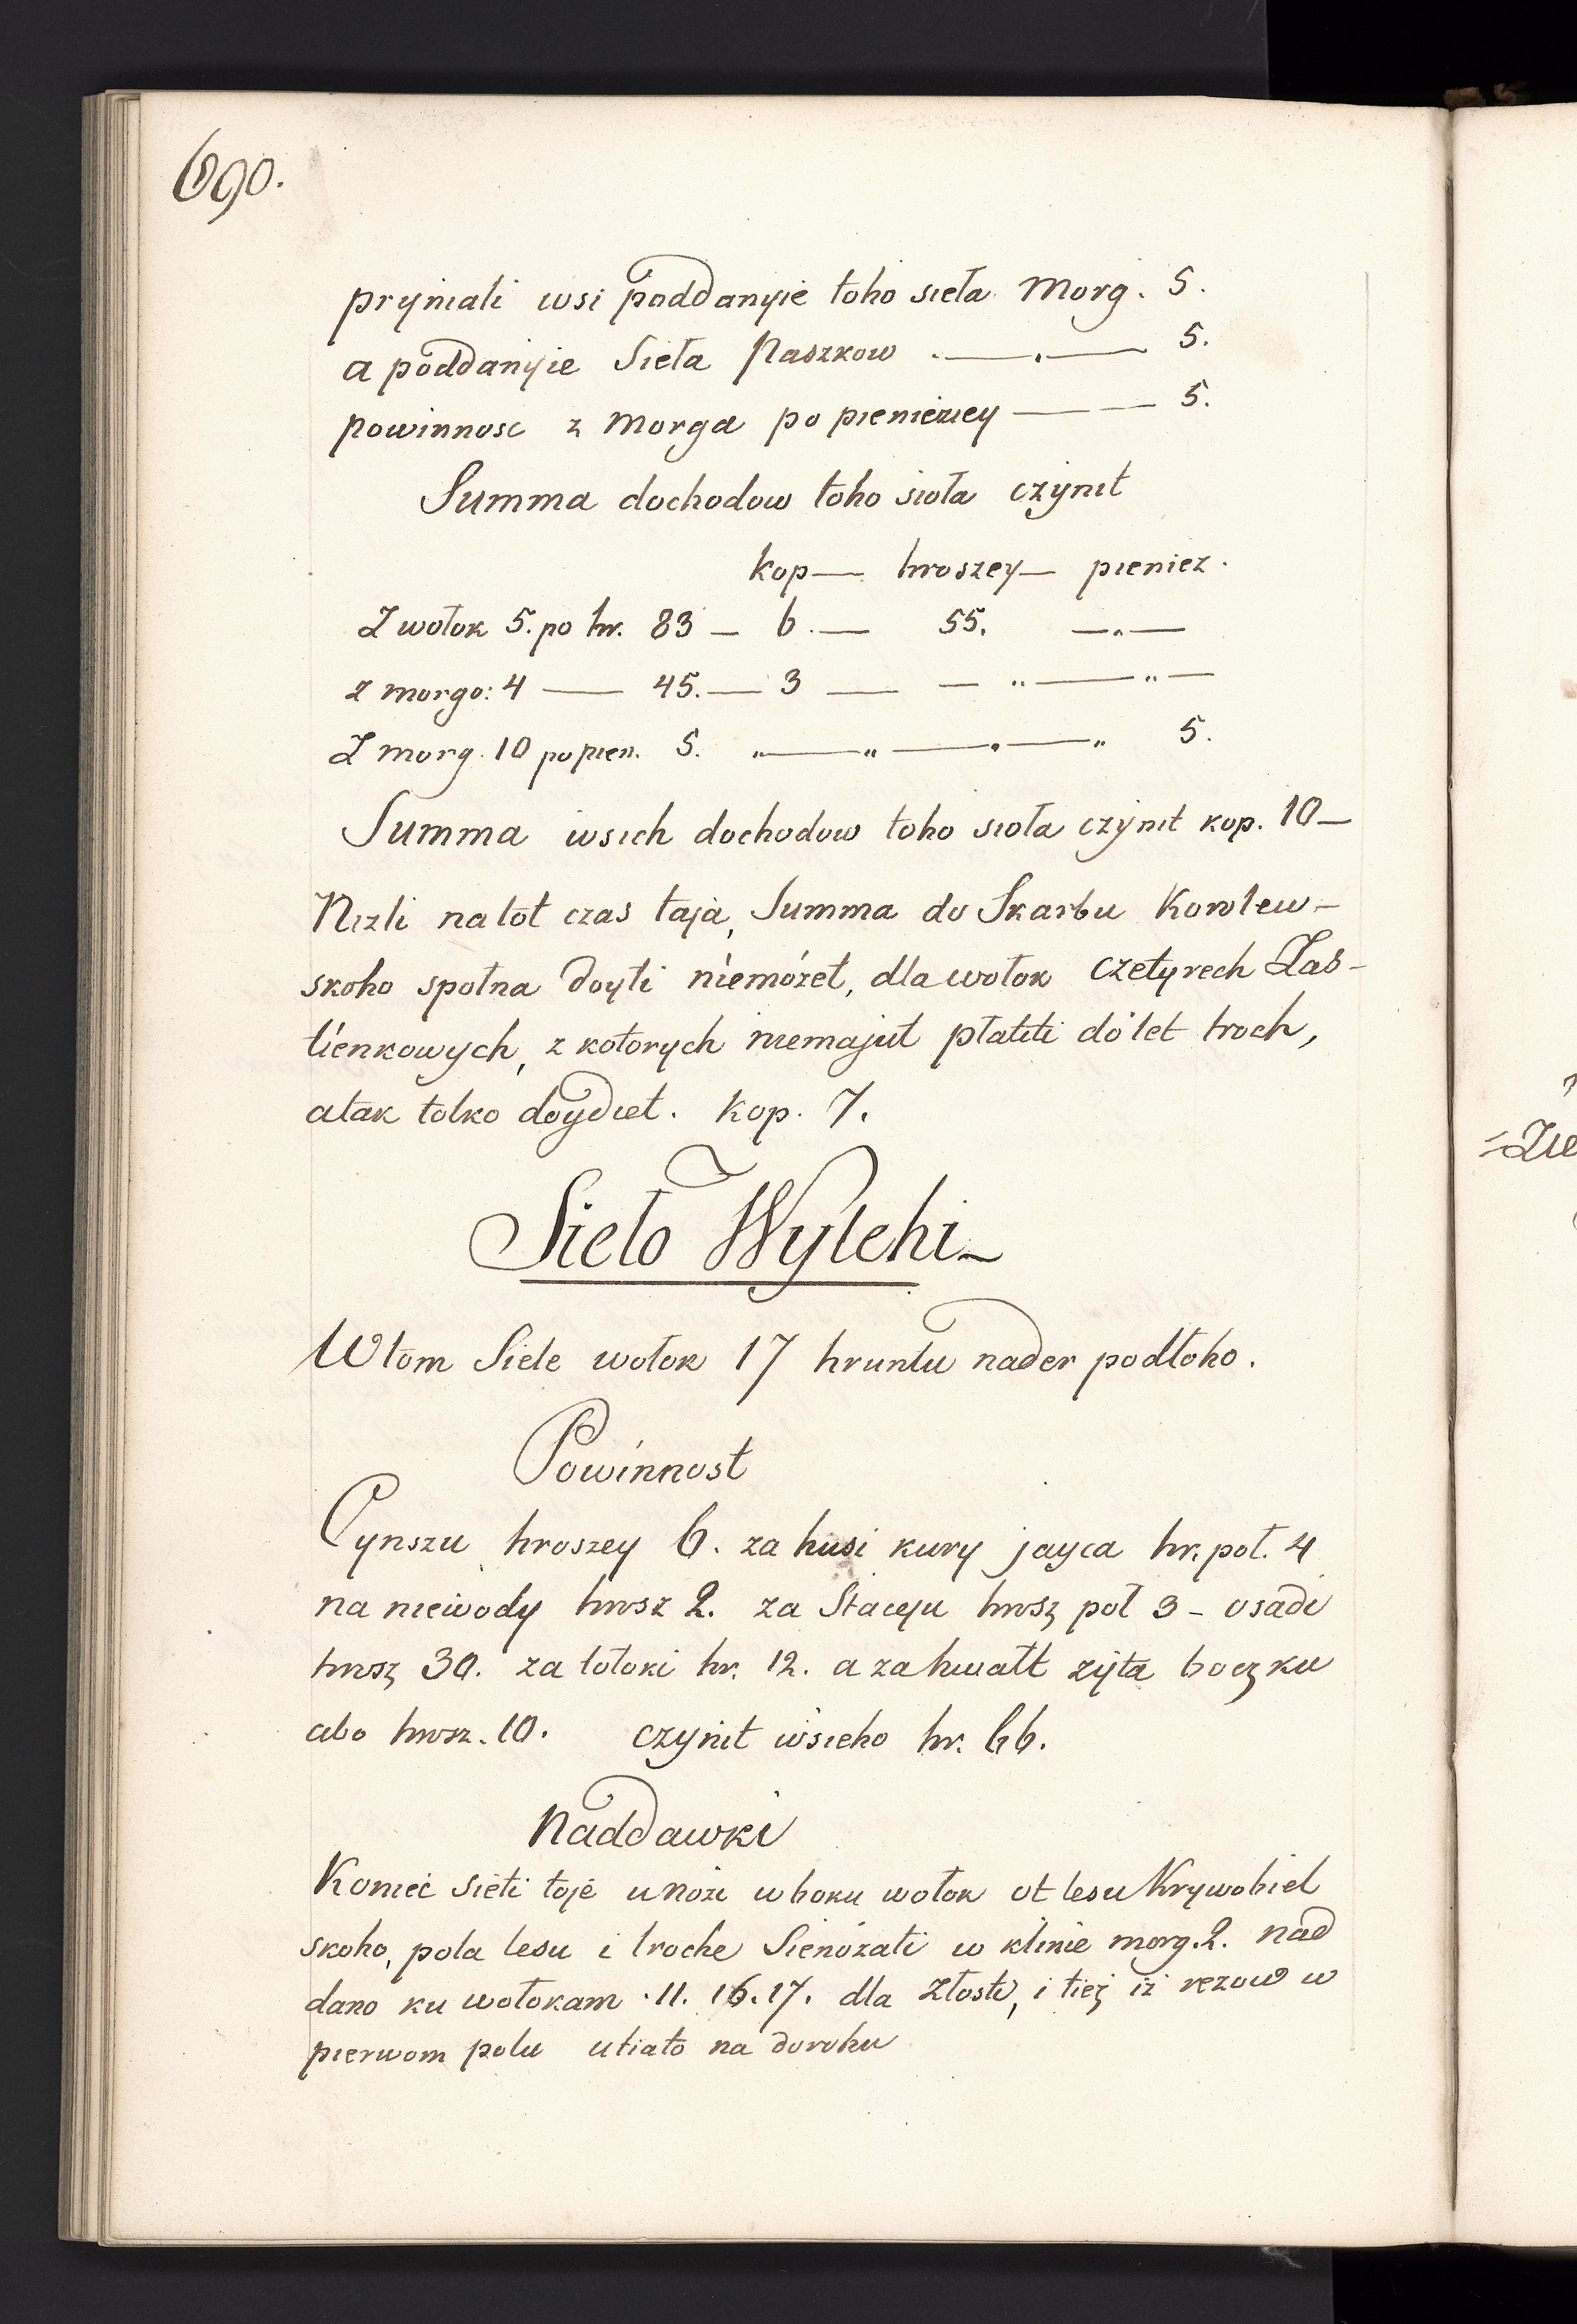 690.
pryniali wsi poddanyie toho sieła Morg. 5.
a poddanyie Sieła Paszkow .—.— 5.
powinnosc z Morga po pienieziey — — 5.
Summa dochodow toho sioła czynit
kop— hroszey— pieniez.
Z wołok 5. po hr. 83 — 6.— 55. —.—
z morgo: 4 — 45.— 3 — — „ — „ —
Z morg. 10 po pien. 5. „ — „ — . — „ 5.
Summa wsich dochodow toho sioła czynit kop. 10—
Nizli na tot czas taja, Summa do Skarbu Korolew-
skoho społna doyti niemożet, dla wołok czetyrech Zas-
tienkowych, z kotorych niemajut płatiti do let troch,
a tak tolko doydiet. kop. 7.
Sieło Wylehi—
W tom Siele wołok 17 hruntu nader podłoho.
Powinnost
Cynszu hroszey 6. za husi kury jayca hr. poł. 4
na niewody hrosz 2. za Stacyu hrosz poł 3 — osadi
hrosz 30. za tołoki hr. 12. a za hwałt zyta boczku
abo hrosz. 10. czynit wsieho hr. 66.
Naddawki
Koniec Sieti toje u noży w boku wołok ot lesu Krywobiel
skoho, pola lesu i troche Sienożati w klinie morg. 2. nad
dano ku wołokam .11. 16. 17. dla Złosti, i tież iż rezow w
pierwom polu utiato na dorohu
=Zie